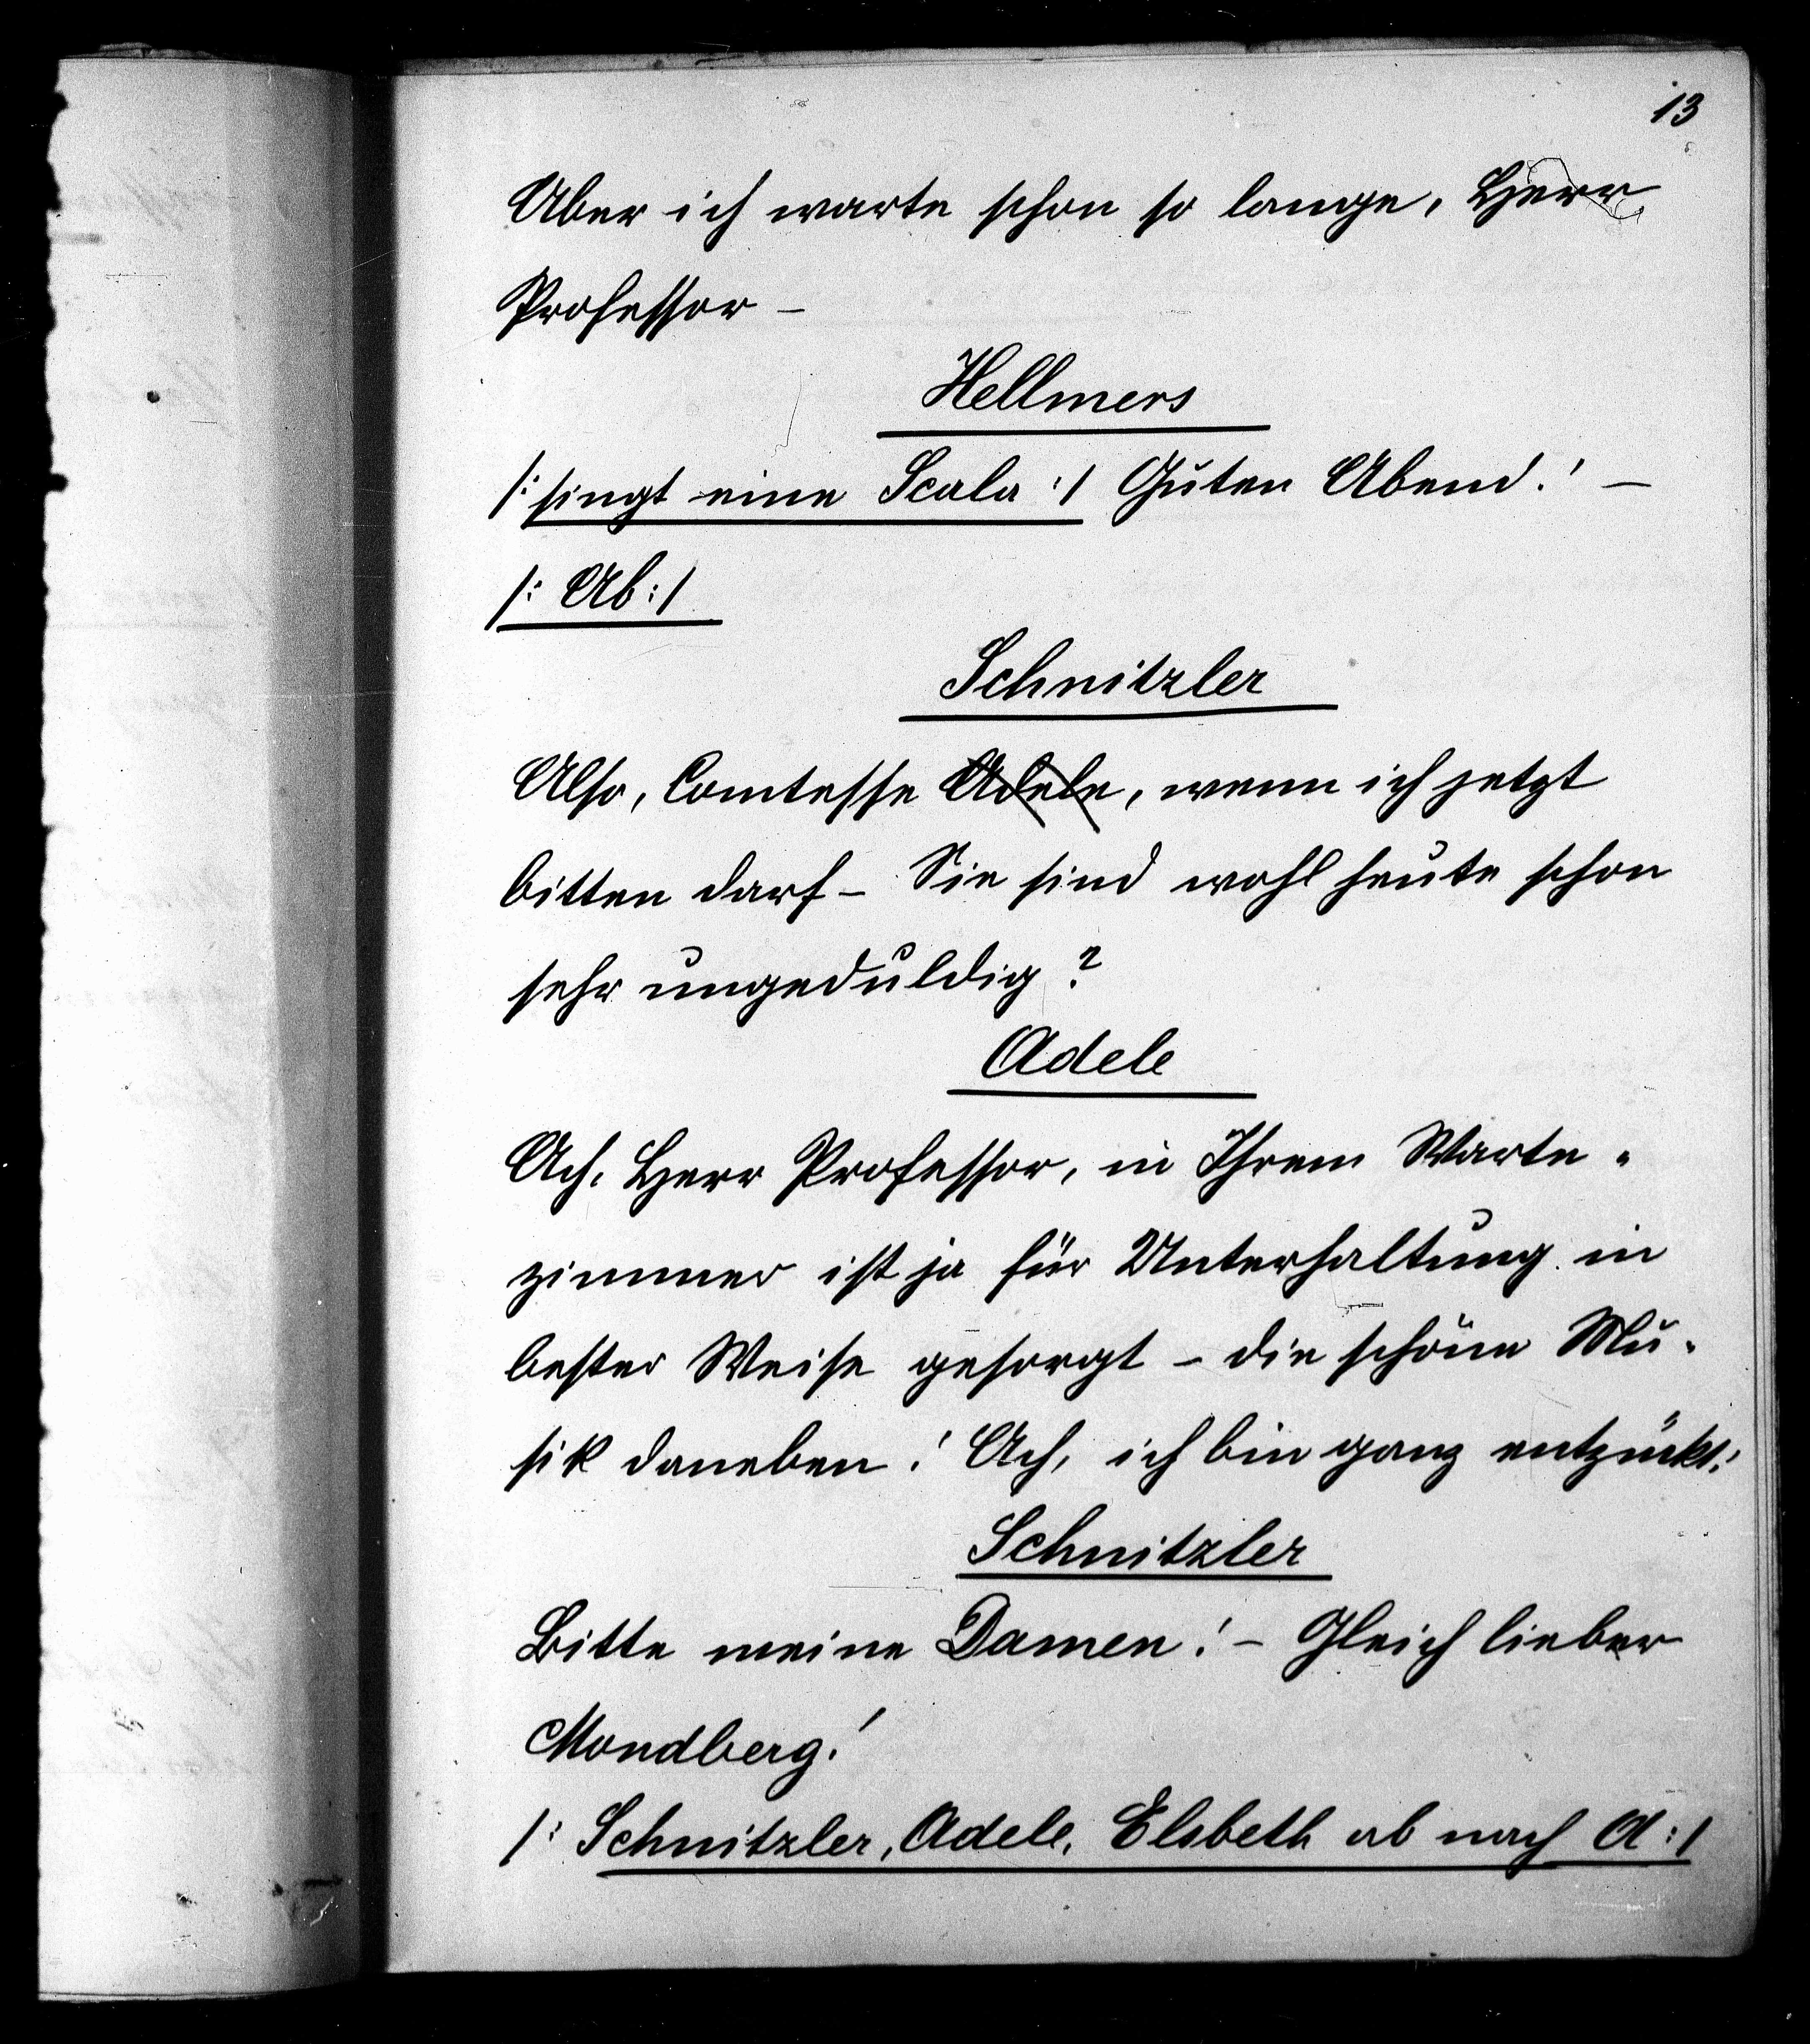 13
Aber ich warte schon so lange, Herr
Professor –
Hellmers
/: singt eine Scala :/ Guten Abend! –
/: Ab :/
Schnitzler
Also, Comtesse Adele, wenn ich jetzt
bitten darf – Sie sind wohl heute schon
sehr ungeduldig?
Adele
Ach, Herr Professor, in Ihrem Warte-
zimmer ist ja für Unterhaltung in
bester Weise gesorgt – die schöne Mu-
sik daneben! Ach, ich bin ganz entzückt!
Schnitzler
Bitte meine Damen! – Gleich lieber
Mondberg!
/: Schnitzler, Adele, Elsbeth ab nach A :/